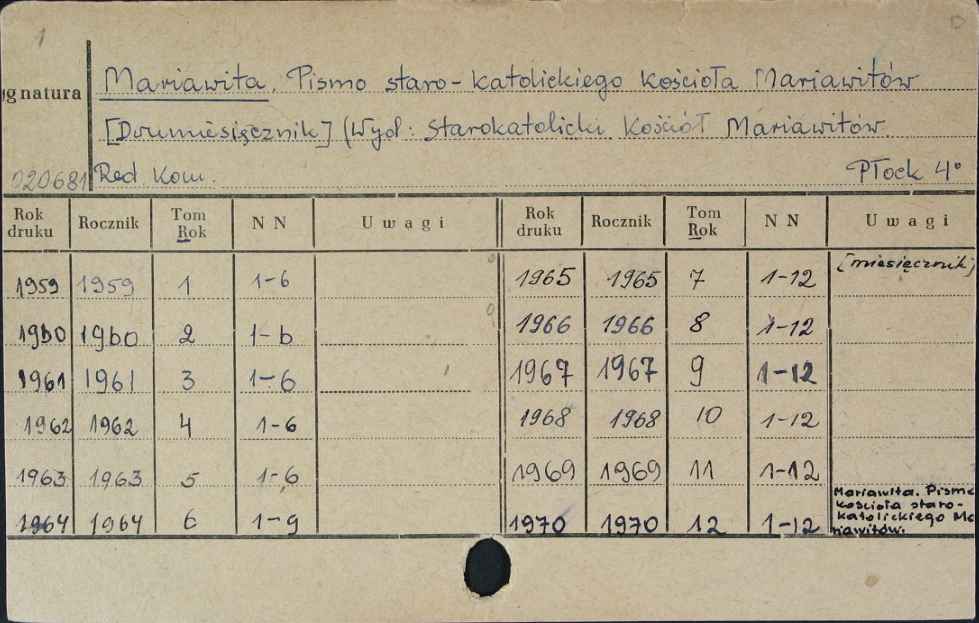 1
D
Mariawita. Pismo staro-katolickiego Kościoła Mariawitów
gnatura
[Dwumiesięcznik] (Wyd: Starokatolicki Kościół Mariawitów
020681 Red Kom. Płock 4°
Rok druku Rocznik Tom Rok NN Uwagi Rok druku Rocznik Tom Rok NN Uwagi
1959 1959 1 1-6 1965 1965 7 1-12 [miesięcznik]
1960 1960 2 1-6 1966 1966 8 1-12
1961 1961 3 1-6 1967 1967 9 1-12
1962 1962 4 1-6 1968 1968 10 1-12
1963 1963 5 1-6 1969 1969 11 1-12
1964 1964 6 1-9 1970 1970 12 1-12
Mariawita. Pismo
kościoła staro-
katolickiego Ma
riawitów.